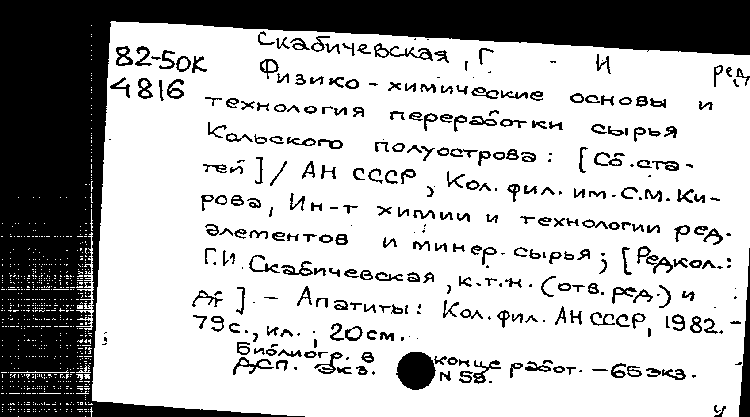 Скабичевская, Г - И ред
82-50К
4816
Физико-химические основы и
технология переработки сырья
Кольского полуострова: [Сб.ста-
тей] / АН СССР, Кол. фил. им. С.М. Ки-
рова, Ин-т химии и технологии ред.
элементов и минер. сырья; [Редкол.:
Г.И. Скабичевская, к.т.н. (отв. ред.) и
др]. - Апатиты: Кол. фил. АН СССР, 1982. -
79с., ил.; 20см.
Библиогр. в конце работ. - 65экз.
ДСП. Экз. N 58.